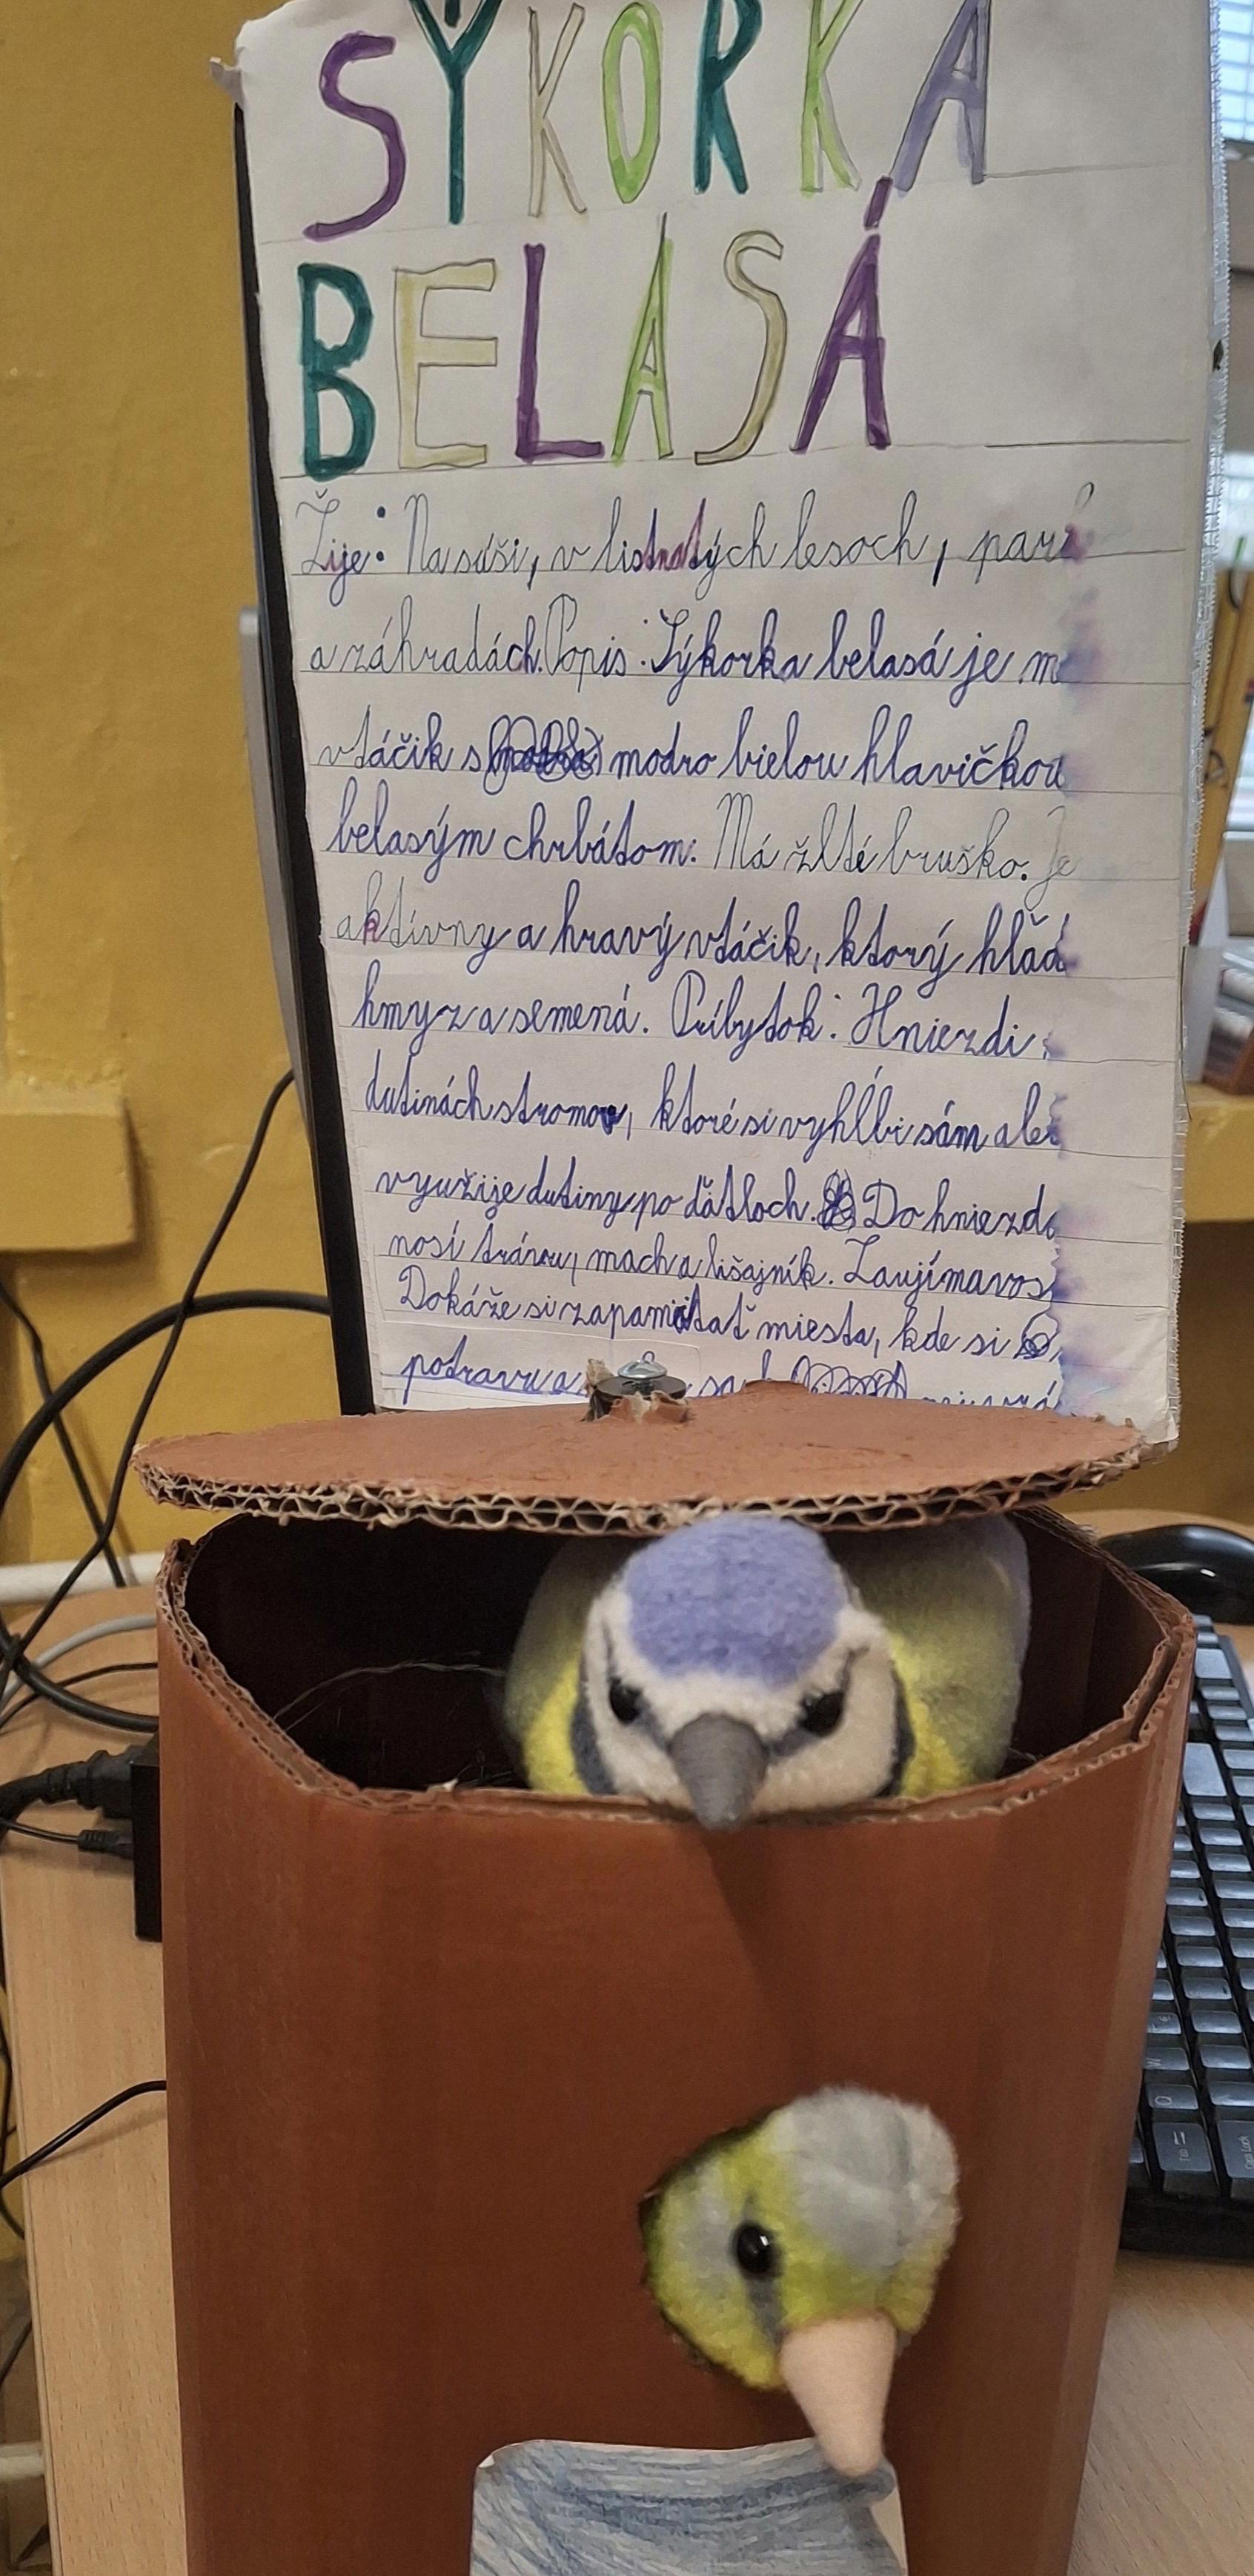 SÝKORKA
BELASÁ
Žije: Na súši, v listnatých lesoch,
a záhradách. Popis: Sýkorka belasá je
vtáčik s modro bielou hlavičkou
belasým chrbátom. Má žlté bruško. Je
aktívny a hravý vtáčik, ktorý
hmyz a semená. Príbytok: Hniezdi
dutinách stromov, ktoré si vyhĺbi sám
využije dutiny po ďatloch. Do
nosí trávu, mach a lišajník.
Dokáže si zapamätať miesta, kde si
potravu a